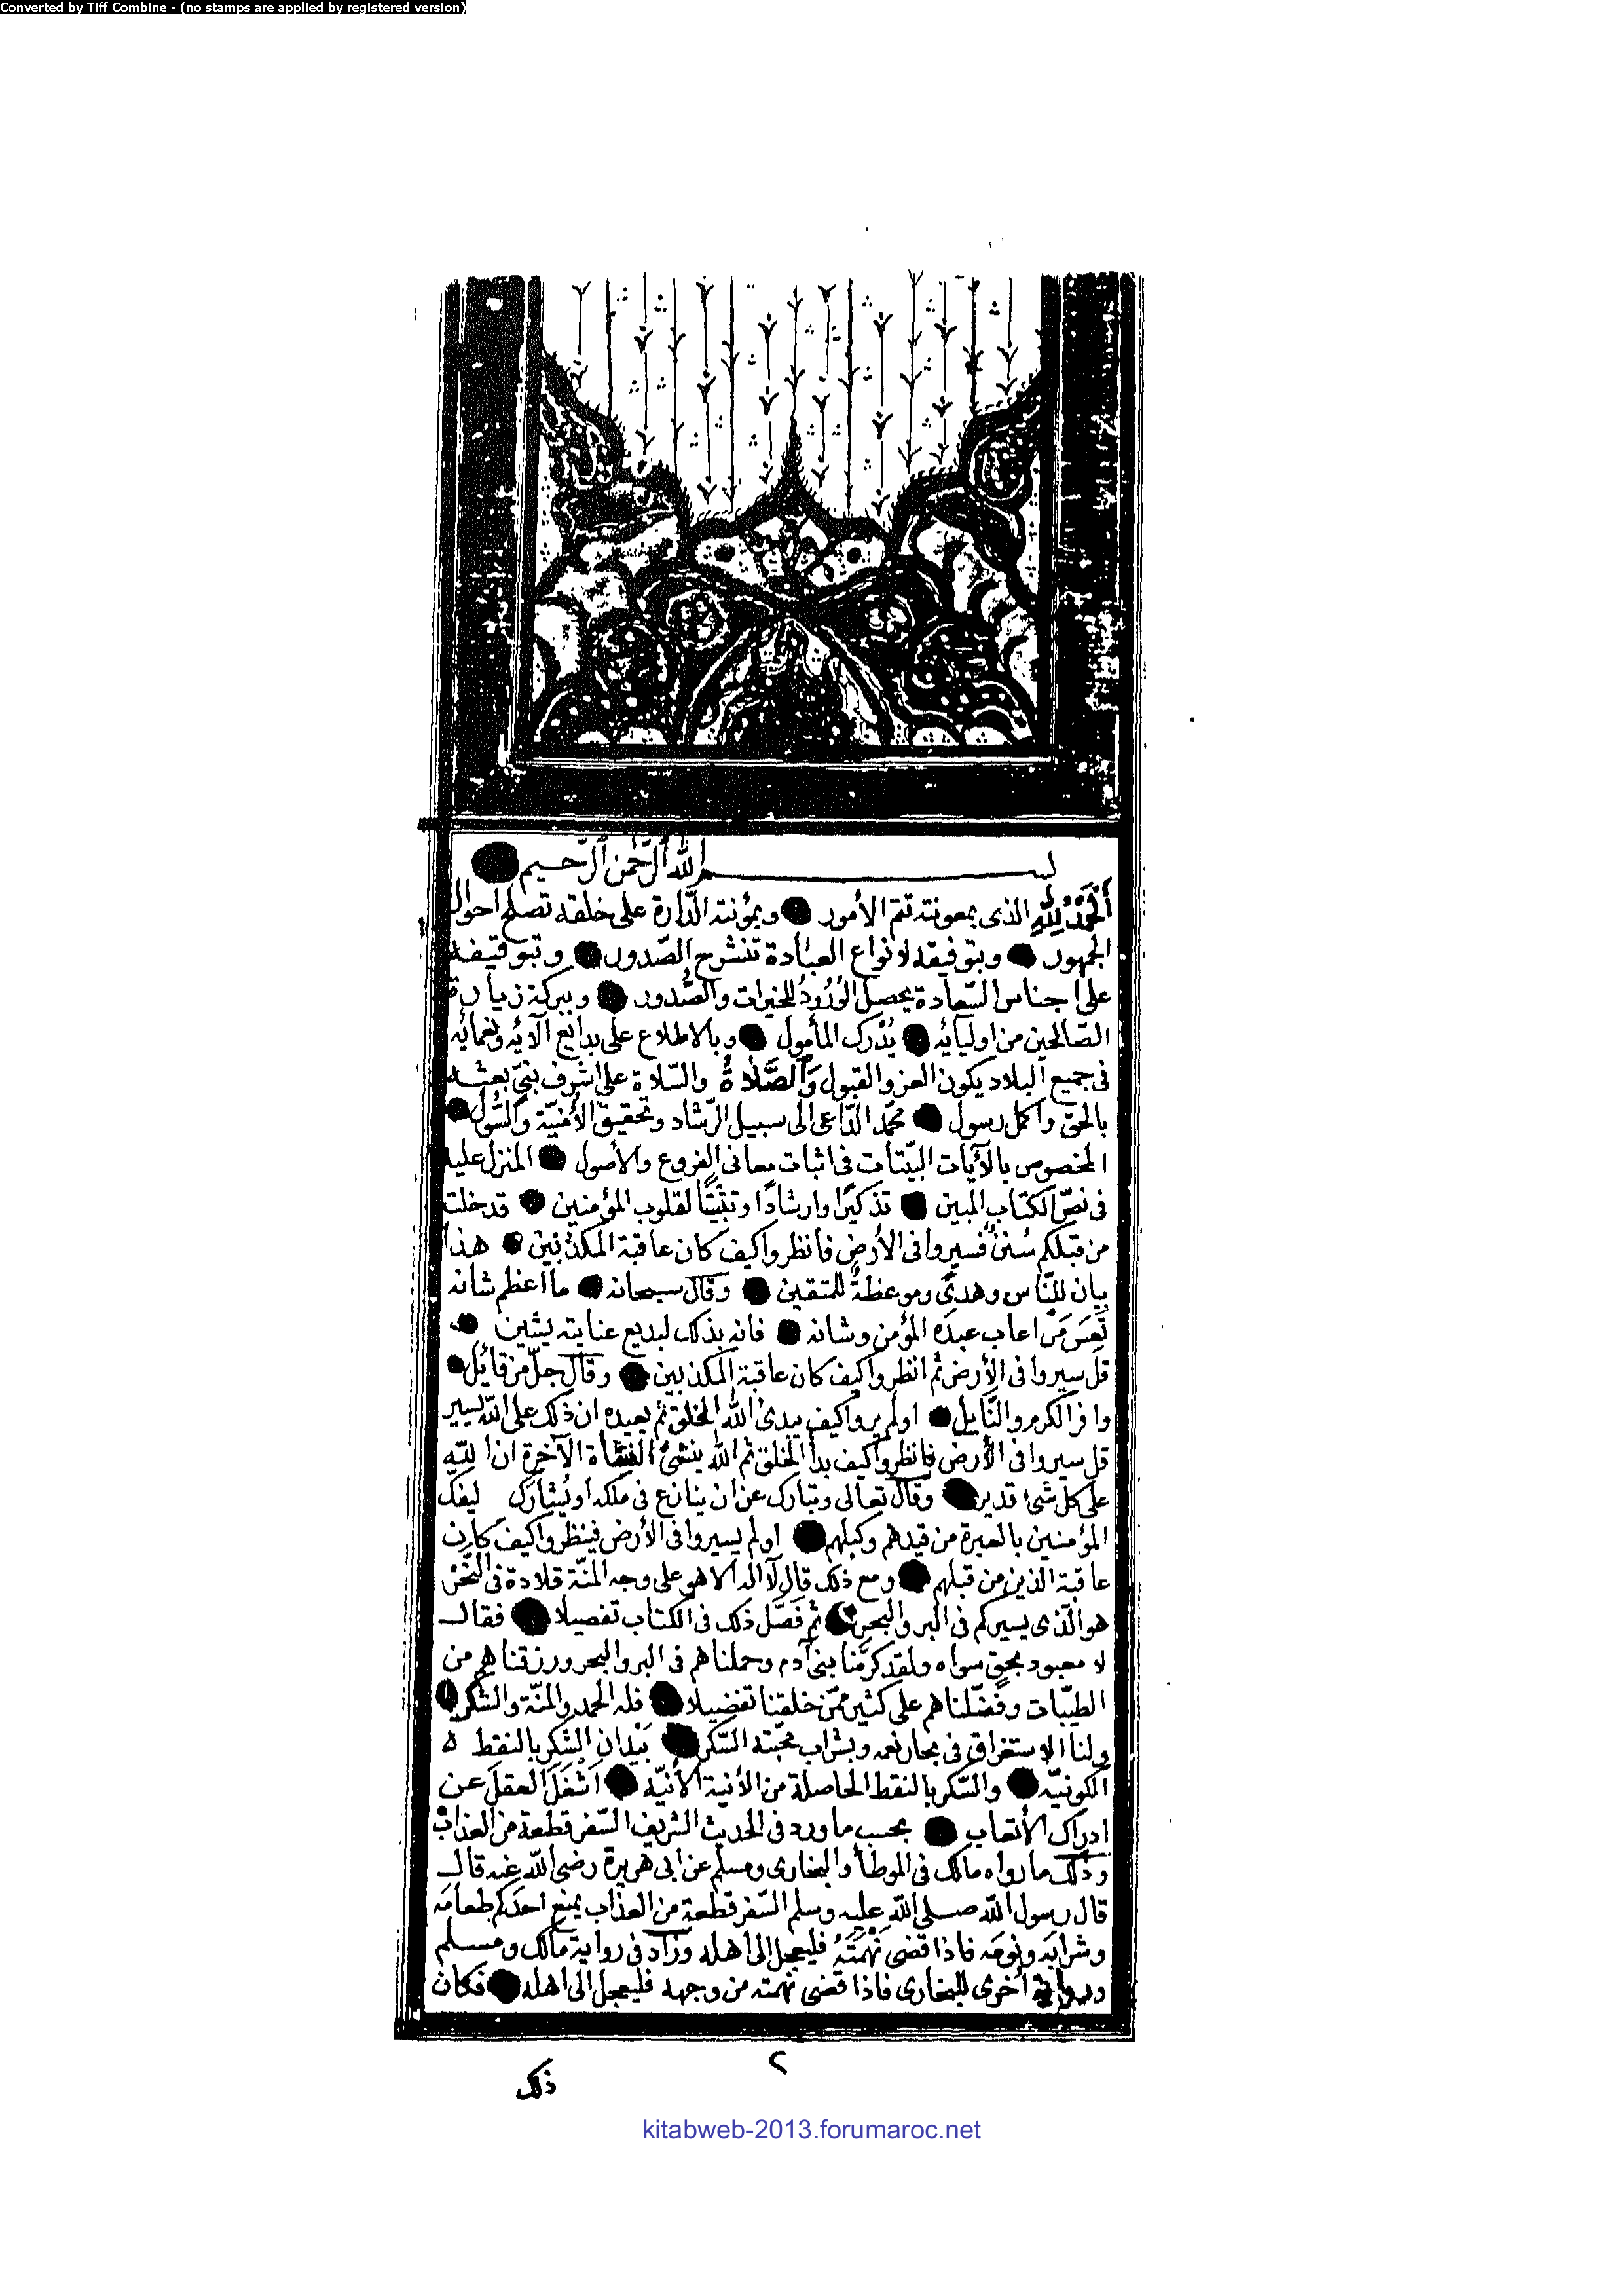 Converted by Tiff Combine - (no stamps are applied by registered version)
بسم الله الرحمن الرحيم
اَلْحَمْدُ لِلّٰهِ الذى بمعونته تتم الأمور وبمؤنته الدّارة على خلقه تصلح احوال
الجمهور وبتوفيقه لانواع العبادة تنشرح الصّدور وبتوقيفه
على اجناس السّعادة يحصل الوُرُودُ للخيرات والصُّدور وببركة زيارة
الصّالحين من اوليائه يُدْرك المأمول وبالاطلاع على بدايع آلائه ونعمائه
فى جميع البلاد يكون العز والقبول وَالصَّلَاةُ والسّلام على اشرف نبىّ بعثه
بالحق واكمل رسول محمّد الدّاعى الى سبيل الرّشاد وتحقيق الأمنيّة والسُّول
المخصوص بالآيات البيّنات فى اثبات معانى الفروع والأصول المنزل عليه
فى نصّ الكتاب المبين تذكيرًا وارشادًا وتثبيتًا لقلوب المؤمنين قد خلت
من قبلكم سُنن فسيروا فى الأرض فانظروا كيف كان عاقبة المكذبين هذا
بيان للنّاس وهدىً وموعظةٌ للمتقين وقال سبحانه ما اعظم شانه
تَعِسَ مَن اعاب عبدَه المؤمن وشانه فانه بذلك لبديع عنايته يشين
قل سيروا فى الأرض ثم انظروا كيف كان عاقبة المكذبين وقال جلّ من قائل
وافر الكرم والنّايل اولم يروا كيف يبدئ الله الخلق ثم يعيده ان ذلك على الله يسير
قل سيروا فى الأرض فانظروا كيف بدأ الخلق ثم الله ينشئ النشأة الآخرة ان الله
على كل شئ قدير وقال تعالى وتبارك عن ان ينازع فى ملكه او يُشارك ليفك
المؤمنين بالعبرة من قيدهم وكبلهم اولم يسيروا فى الأرض فينظروا كيف كان
عاقبة الذين من قبلهم ومع ذلك قال لآ اله الا هو على وجه المنّة قلادة فى النَّحْر
هو الّذى يسيركم فى البر والبحر ثم فَصَّل ذلك فى الكتاب تفصيلا فقال
لا معبود بحقٍ سواه ولقد كرّمنا بنى آدم وحملناهم فى البر والبحر ورزقناهم من
الطيّبات وفضّلناهم على كثير ممّن خلقنا تفضيلا فله الحمد والمنّة والشكر
ولنا الاستغراق فى بحار نعمه وبشراب محبّته السّكر بَيْدان الشّكر بالنقط
الكونيّه والسّكر بالنقط الحاصلة من الأنية الأنيّه اَشْغَلَ العقلَ عن
ادراك الأتعاب بحسب ما ورد فى الحديث الشريف السّفر قطعة من العذاب
وذلك ما رواه مالك فى الموطأ والبخارى ومسلم عن ابى هريرة رضى الله عنه قال
قال رسول الله صلى الله عليه وسلم السّفر قطعة من العذاب يمنع احدكم طعامَه
وشرابَه ونومَه فاذا قضى نَهْمَتَهُ فليعجل الى اهله وزاد فى رواية مالك ومسلم
ورواية اخرى للبخارى فاذا قضى نهمته من وجهه فليعجل الى اهله فكان
٢
ذلك
kitabweb-2013.forumaroc.net